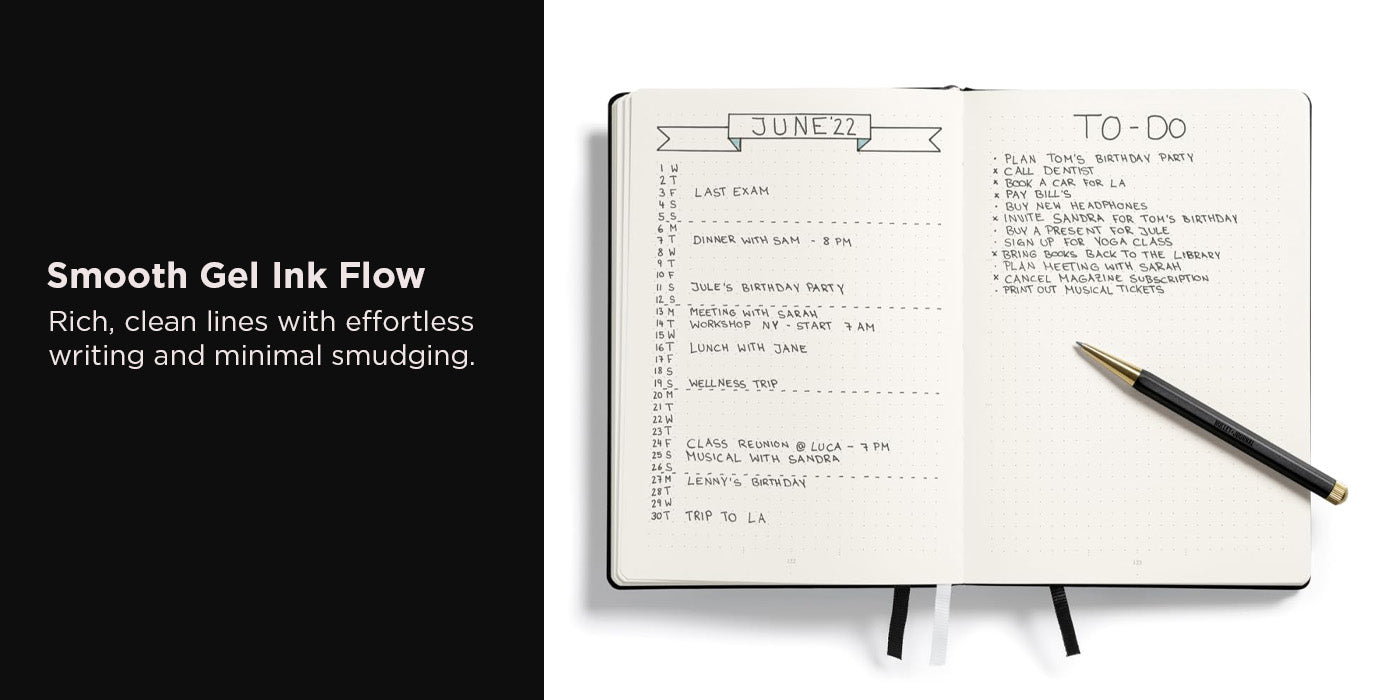 Smooth Gel Ink Flow
Rich, clean lines with effortless
writing and minimal smudging.
JUNE'22
1 W
2 T
3 F LAST EXAM
4 S
5 S
6 M
7 T DINNER WITH SAM - 8 PM
8 W
9 T
10 F
11 S JULE'S BIRTHDAY PARTY
12 S
13 M MEETING WITH SARAH
14 T WORKSHOP NY - START 7 AM
15 W
16 T LUNCH WITH JANE
17 F
18 S
19 S WELLNESS TRIP
20 M
21 T
22 W
23 T
24 F CLASS REUNION @ LUCA - 7 PM
25 S MUSICAL WITH SANDRA
26 S
27 M LENNY'S BIRTHDAY
28 T
29 W
30 T TRIP TO LA
122
TO-DO
· PLAN TOM'S BIRTHDAY PARTY
x CALL DENTIST
x BOOK A CAR FOR LA
x PAY BILL'S
· BUY NEW HEADPHONES
x INVITE SANDRA FOR TOM'S BIRTHDAY
· BUY A PRESENT FOR JULE
· SIGN UP FOR YOGA CLASS
x BRING BOOKS BACK TO THE LIBRARY
· PLAN MEETING WITH SARAH
x CANCEL MAGAZINE SUBSCRIPTION
· PRINT OUT MUSICAL TICKETS
123